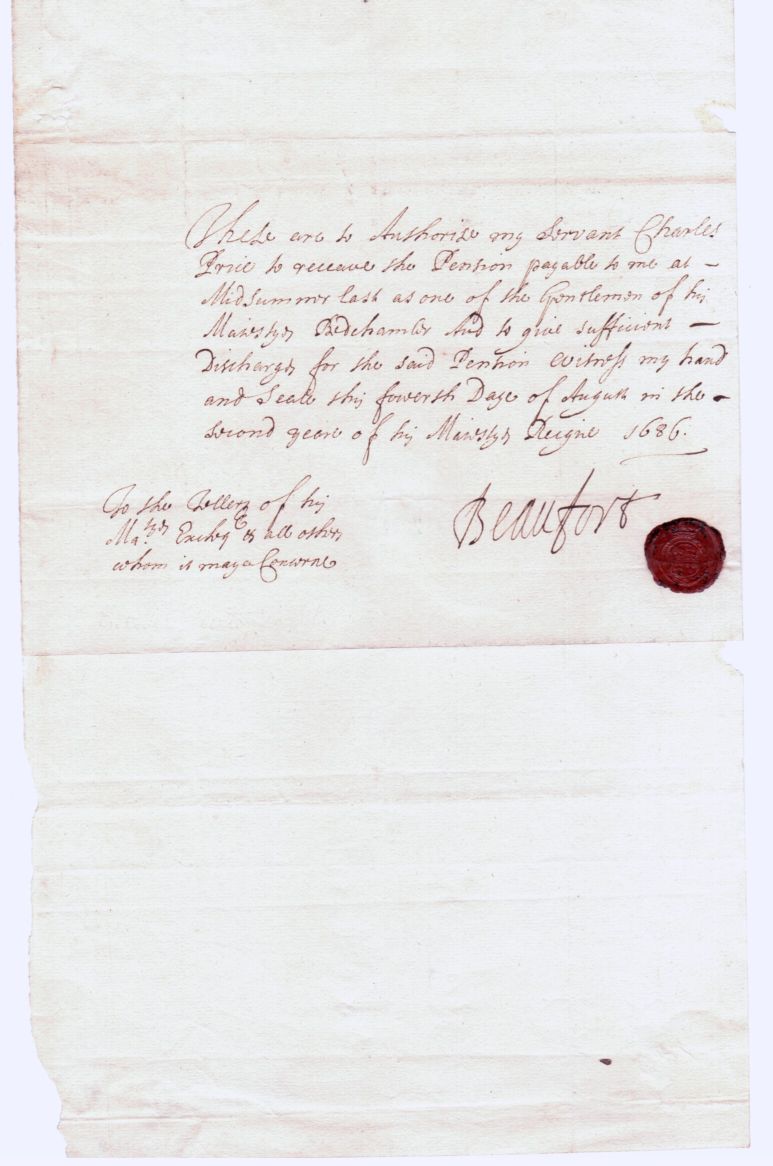 These are to Authorize my Servant Charles
Price to receave the Pension payable to me at –
Midsummer last as one of the Gentlemen of his
Maiestyes Bedchamber And to give sufficient –
Discharges for the said Pension Witness my hand
and Seale this fowerth Daye of August in the –
second yeare of his Maiestyes Reigne 1686.
To the Tellers of his
Ma:tyes Excheqr & all others
whom it maye Concerne
Beaufort